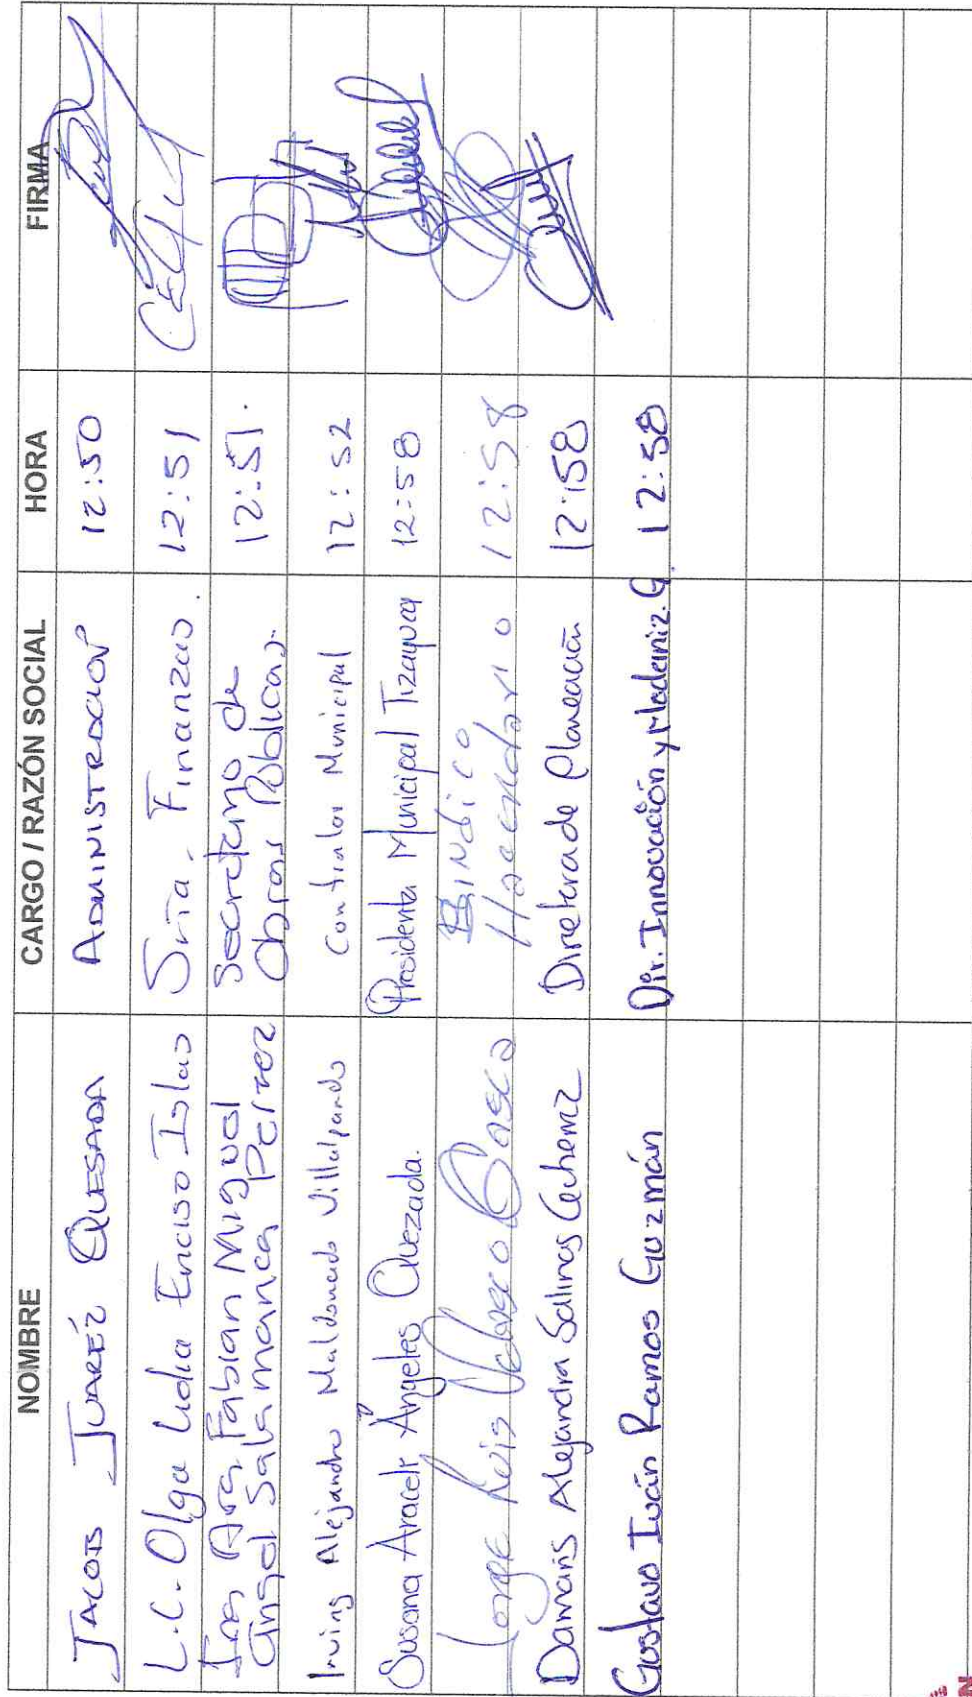 NOMBRE CARGO / RAZÓN SOCIAL HORA FIRMA
JACOB JUÁREZ QUESADA ADMINISTRACIÓN 12:50
L.C. Olga Lidia Enciso Islas Sria. Finanzas. 12:51
Ing. Arq. Fabian Miguel Secretario de 12:51.
Angel Salamanca Perez Obras Públicas.
Irving Alejandro Maldonado Villalpando Contralor Municipal 12:52
Susana Araceli Ángeles Quezada. Presidenta Municipal Tizayuca 12:58
Jorge Luis Síndico 12:58
Hacendario
Damaris Alejandra Salinas Directora de Planeación 12:58
Gustavo Iván Ramos Guzmán Dir. Innovación y Moderniz. G. 12:58